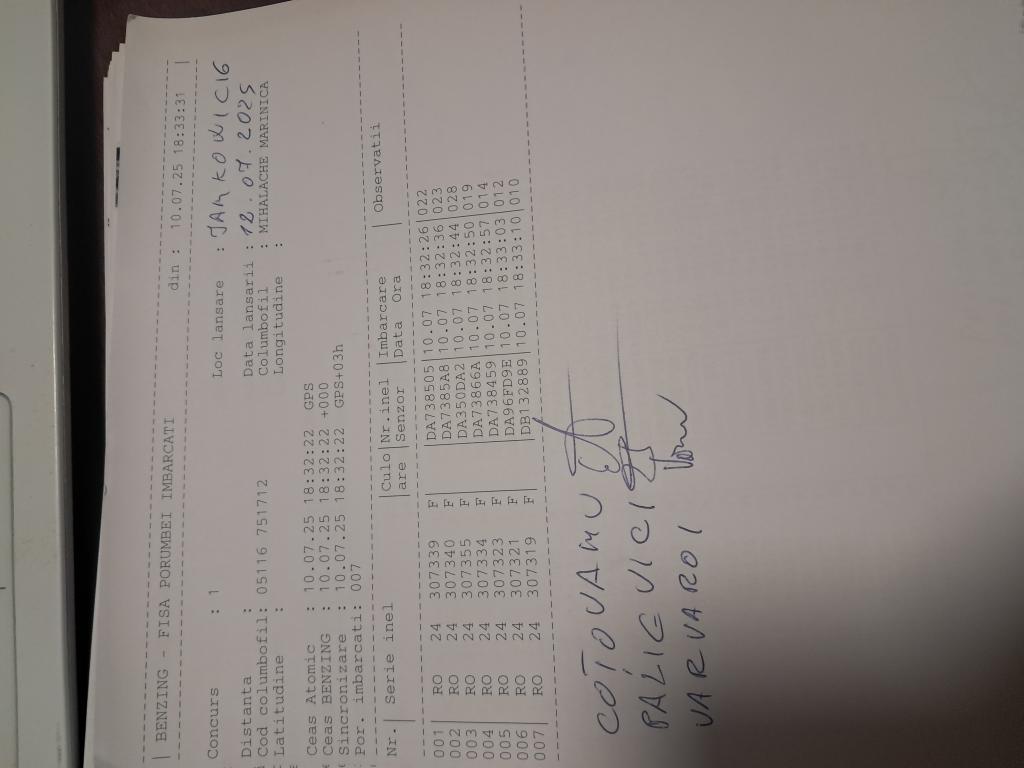 | BENZING - FISA PORUMBEI IMBARCATI
din : 10.07.25 18:33:31 |
Concurs : 1 Loc lansare : JAMKOWICI6
Distanta : Data lansarii : 12.07.2025
Cod columbofil: 05116 751712 Columbofil : MIHALACHE MARINICA
Latitudine : Longitudine :
Ceas Atomic : 10.07.25 18:32:22 GPS
Ceas BENZING : 10.07.25 18:32:22 +000
Sincronizare : 10.07.25 18:32:22 GPS+03h
Por. imbarcati: 007
Nr. | Serie inel |Culo|Nr.inel |Imbarcare | Observatii
|are |Senzor |Data Ora |
001 | RO 24 307339 F | |DA738505|10.07 18:32:26|022
002 | RO 24 307340 F | |DA7385A8|10.07 18:32:36|023
003 | RO 24 307355 F | |DA350DA2|10.07 18:32:44|028
004 | RO 24 307334 F | |DA73866A|10.07 18:32:50|019
005 | RO 24 307323 F | |DA738459|10.07 18:32:57|014
006 | RO 24 307321 F | |DA96FD9E|10.07 18:33:03|012
007 | RO 24 307319 F | |DB132889|10.07 18:33:10|010
COȚOVAMU
PĂLICVICI
VARVAROI